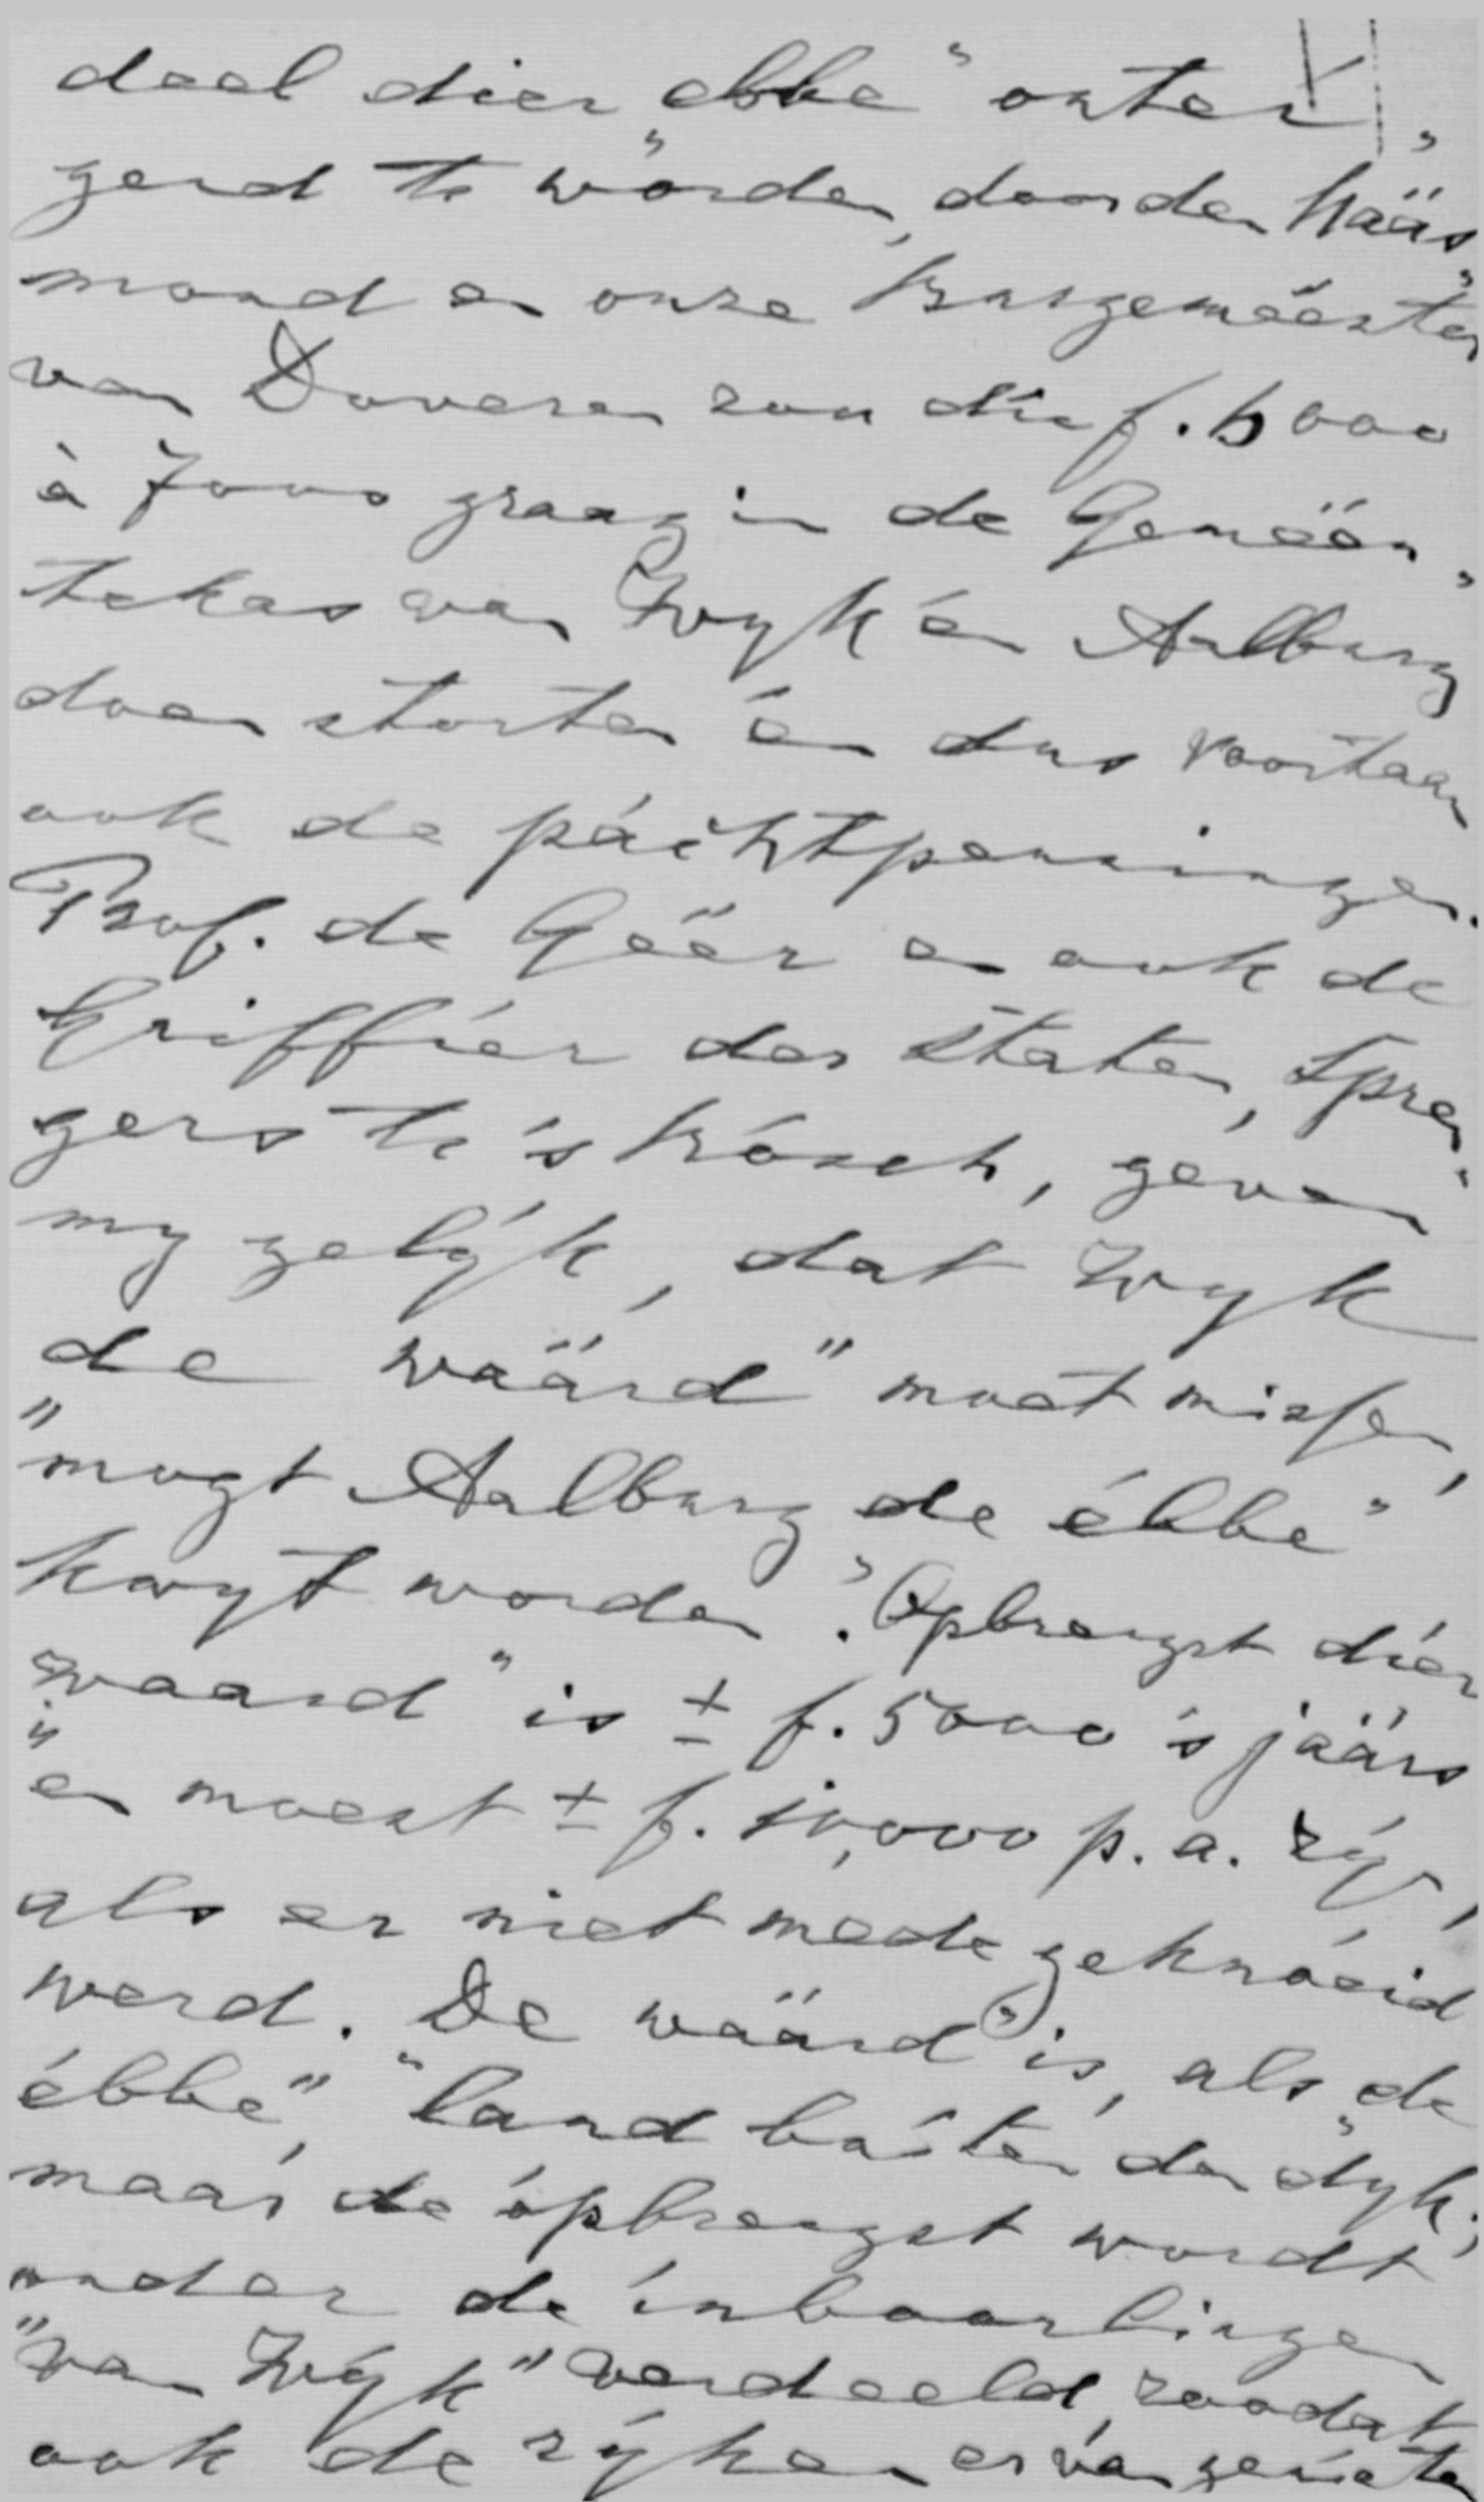 deel dier „ebbe” ontei„
gend te worden, door den haas„
mond en onze burgemeester
van Daveren zou die f. 6000
à 7000 graag in de Gemeen„
tekas van Wyk en Aalburg
doen storten en dus voortaan
ook de pachtpenningen.
Prof. de Geer en ook de
Griffier der Staten, Spren„
gers te 's Bosch, geven
my gelyk, dat Wyk
de „waard” moet missen,
mogt Aalburg de „ebbe”
kwyt worden. Opbrengst dier
„waard” is ± f. 5000 's jaars
en moest ± f. 10,000 p. a. zyn,
als er niet mede geknoeid
werd. De „waard” is, als „de
ebbe”, land buiten den dyk;
maar de opbrengst wordt
onder de „inboorlingen
van Wyk” verdeeld, zoodat
ook de ryken ervan genieten